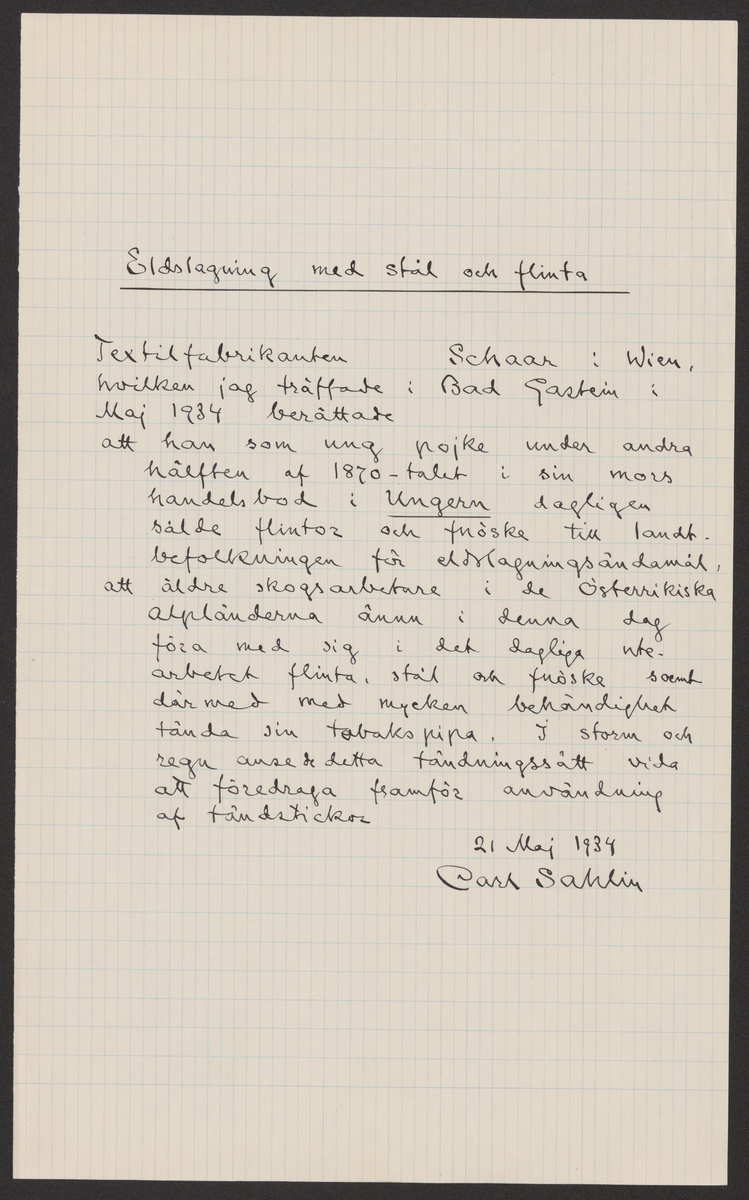 Eldslagning med stål och flinta
Textilfabrikanten Schaar i Wien,
hvilken jag träffade i Bad Gastein i
Maj 1934 berättade
att han som ung pojke under andra
hälften af 1870-talet i sin mors
handelsbod i Ungern dagligen
sålde flintor och fnöske till landt-
befolkningen för eldslagningsändamål,
att äldre skogsarbetare i de Österrikiska
Alpländerna ännu i denna dag
föra med sig i det dagliga ute-
arbetet flinta, stål och fnöske samt
därmed med mycken behändighet
tända sin tobakspipa. I storm och
regn anse de detta tändningssätt vida
att föredraga framför användning
af tändstickor
21 Maj 1934
Carl Sahlin